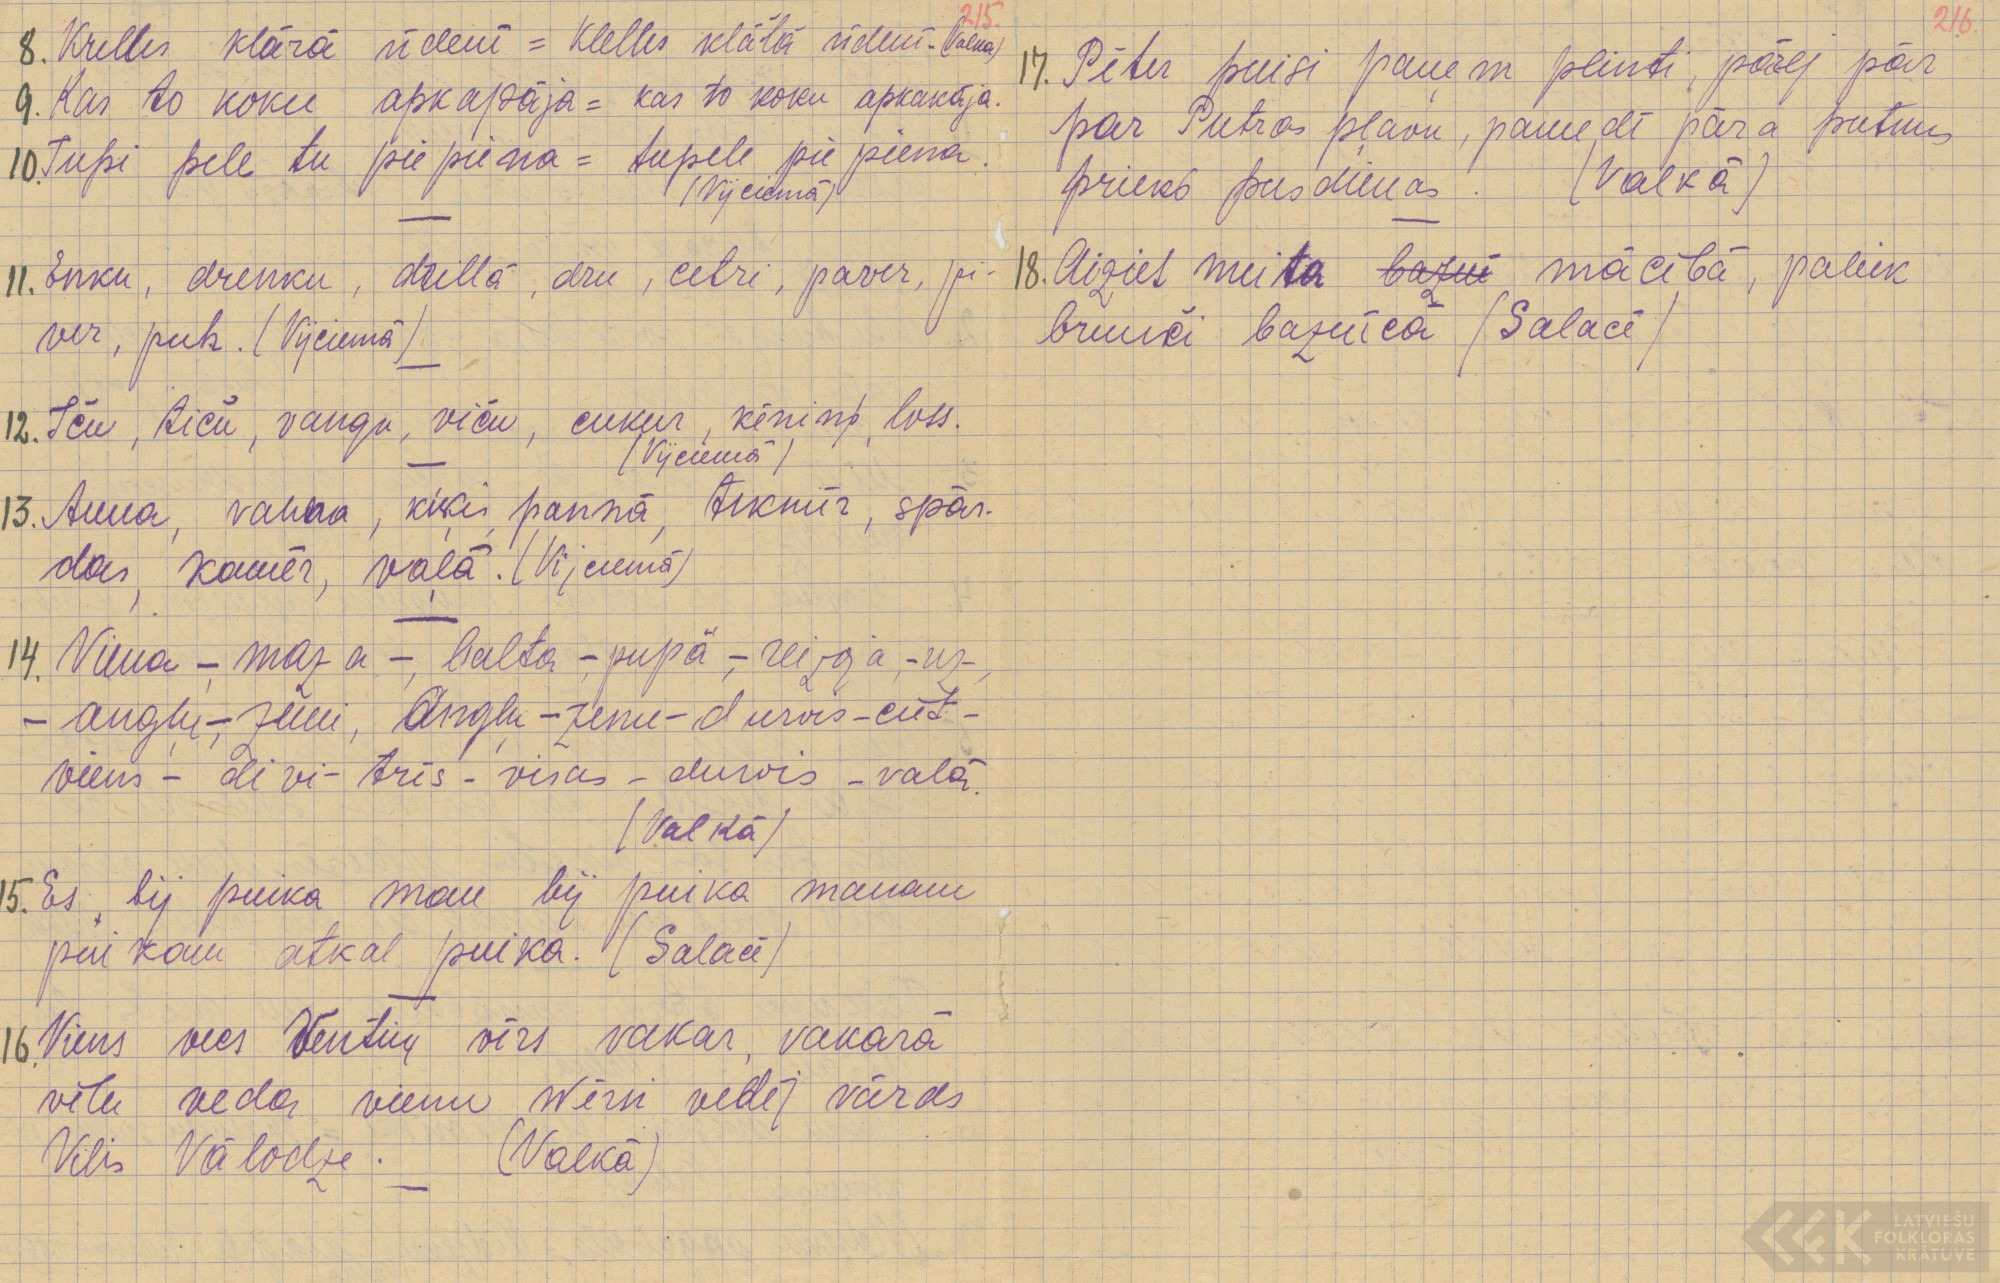 215.
8. Krelles klārā ūdenī = Klelles klālā ūdenī. (Valkā)
9. Kas to koku apkapāja = kas to koku apkakāja.
10. Tupi pele tu pie piena = tupele pie piena.
(Vijciemā)
11. Enku, drenku, drillā, dru, cetri, paver, pi-
ver, puk. (Vijciemā)
12. Iču, tiču, vangu, viču, cukur, ķēniņ, loss.
(Vijciemā)
13. Anna, vanna, ķiķis, pannā, teknīr, spār-
das, kamēr, vaļā. (Vijciemā)
14. Viena -, maza -, balta -, pupā -, reizoja, - uz -,
- angļu, - zemi, Angļu - zemē - durvis - ciet -
viens - divi - trīs - visas - durvis - valā.
(Valkā)
15. Es bij puika man bij puika manam
puikam atkal puika. (Salacī)
16. Viens vecs Ventiņ vīrs vakar, vakarā
vēlu veda vienu vēzi vedēj vārds
Vilis Vālodze. (Valkā)
216.
17. Pēter puisi paņem plinti, pārej pār
par Putras pļavu, pamedī pāra putnus
prieks pusdienas. (Valkā)
18. Aiziet meita baznī mācībā, paliek
brunči baznīcā (Salacī)
LATVIEŠU
FOLKLORAS
KRĀTUVE